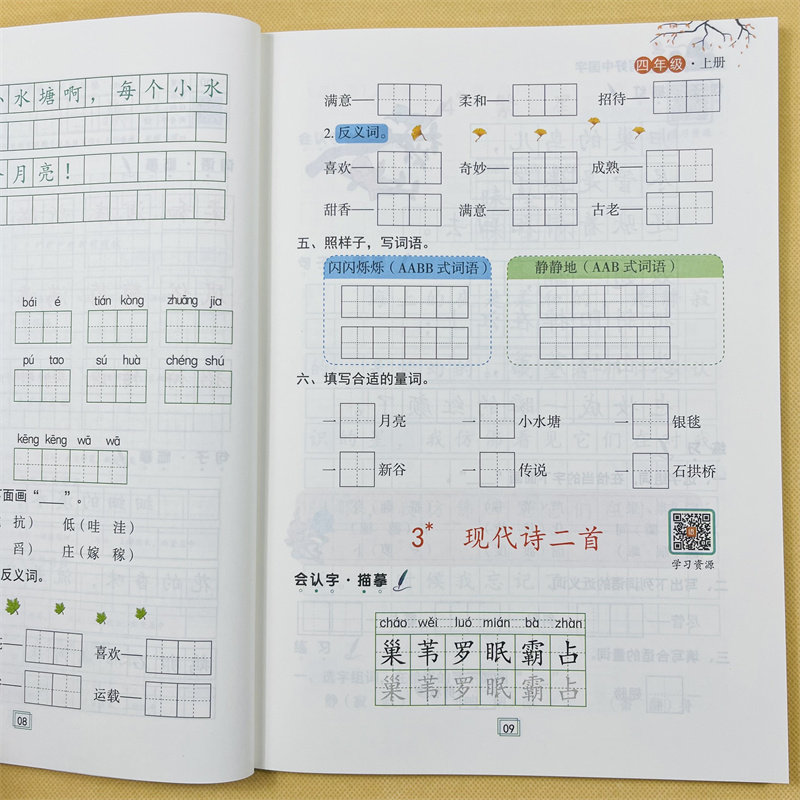 小水塘啊，每个小水
月亮！
bái é tián kòng zhuāng jia
pú tao sú huà chéng shú
kēng kēng wā wā
面画“___”。
抗） 低（哇 洼）
舀） 庄（嫁 稼）
反义词。
喜欢—
运载—
08
四年级·上册
满意— 柔和— 招待—
2.反义词。
喜欢— 奇妙— 成熟—
甜香— 满意— 古老—
五、照样子，写词语。
闪闪烁烁（AABB 式词语） 静静地（AAB 式词语）
六、填写合适的量词。
一 月亮 一 小水塘 一 银毯
一 新谷 一 传说 一 石拱桥
3* 现代诗二首
学习资源
会认字·描摹
cháo wěi luó mián bà zhàn
巢苇罗眠霸占
巢苇罗眠霸占
09